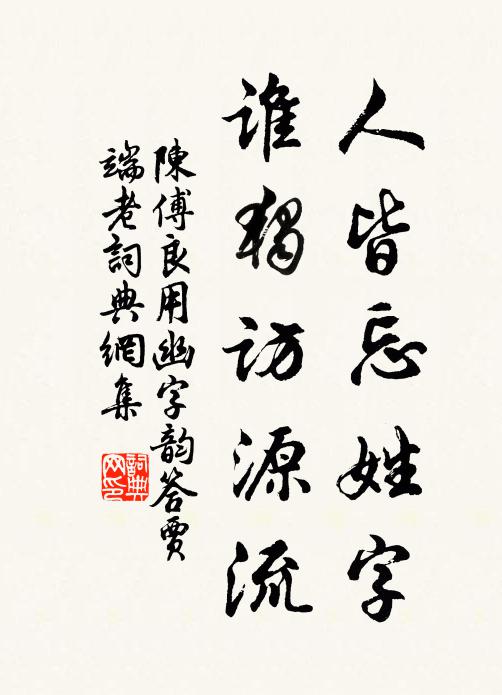 人皆忘姓字
誰獨訪源流
陳傅良用幽字韵答賈
端老詞典網集
詞典
网印